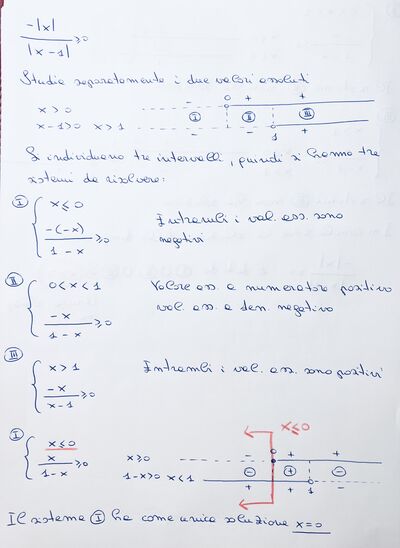 -|x|
|x-1| ≥0
Studio separatamente i due valori assoluti
x>0
x-1>0 x>1
- 0 + +
I II III
- - 1 +
Si individuano tre intervalli, quindi si hanno tre
sistemi da risolvere:
I { x≤0 Entrambi i val. ass. sono
-(-x) negativi
1-x ≥0
II { 0<x<1 Valore ass. a numeratore positivo
-x val. ass. a den. negativo
1-x ≥0
III { x>1 Entrambi i val. ass. sono positivi
-x
x-1 ≥0
I { x≤0 x≤0
x
1-x ≥0
x≥0 - 0 + +
1-x>0 x<1 - + -
+ + 1 -
Il sistema I ha come unica soluzione x=0